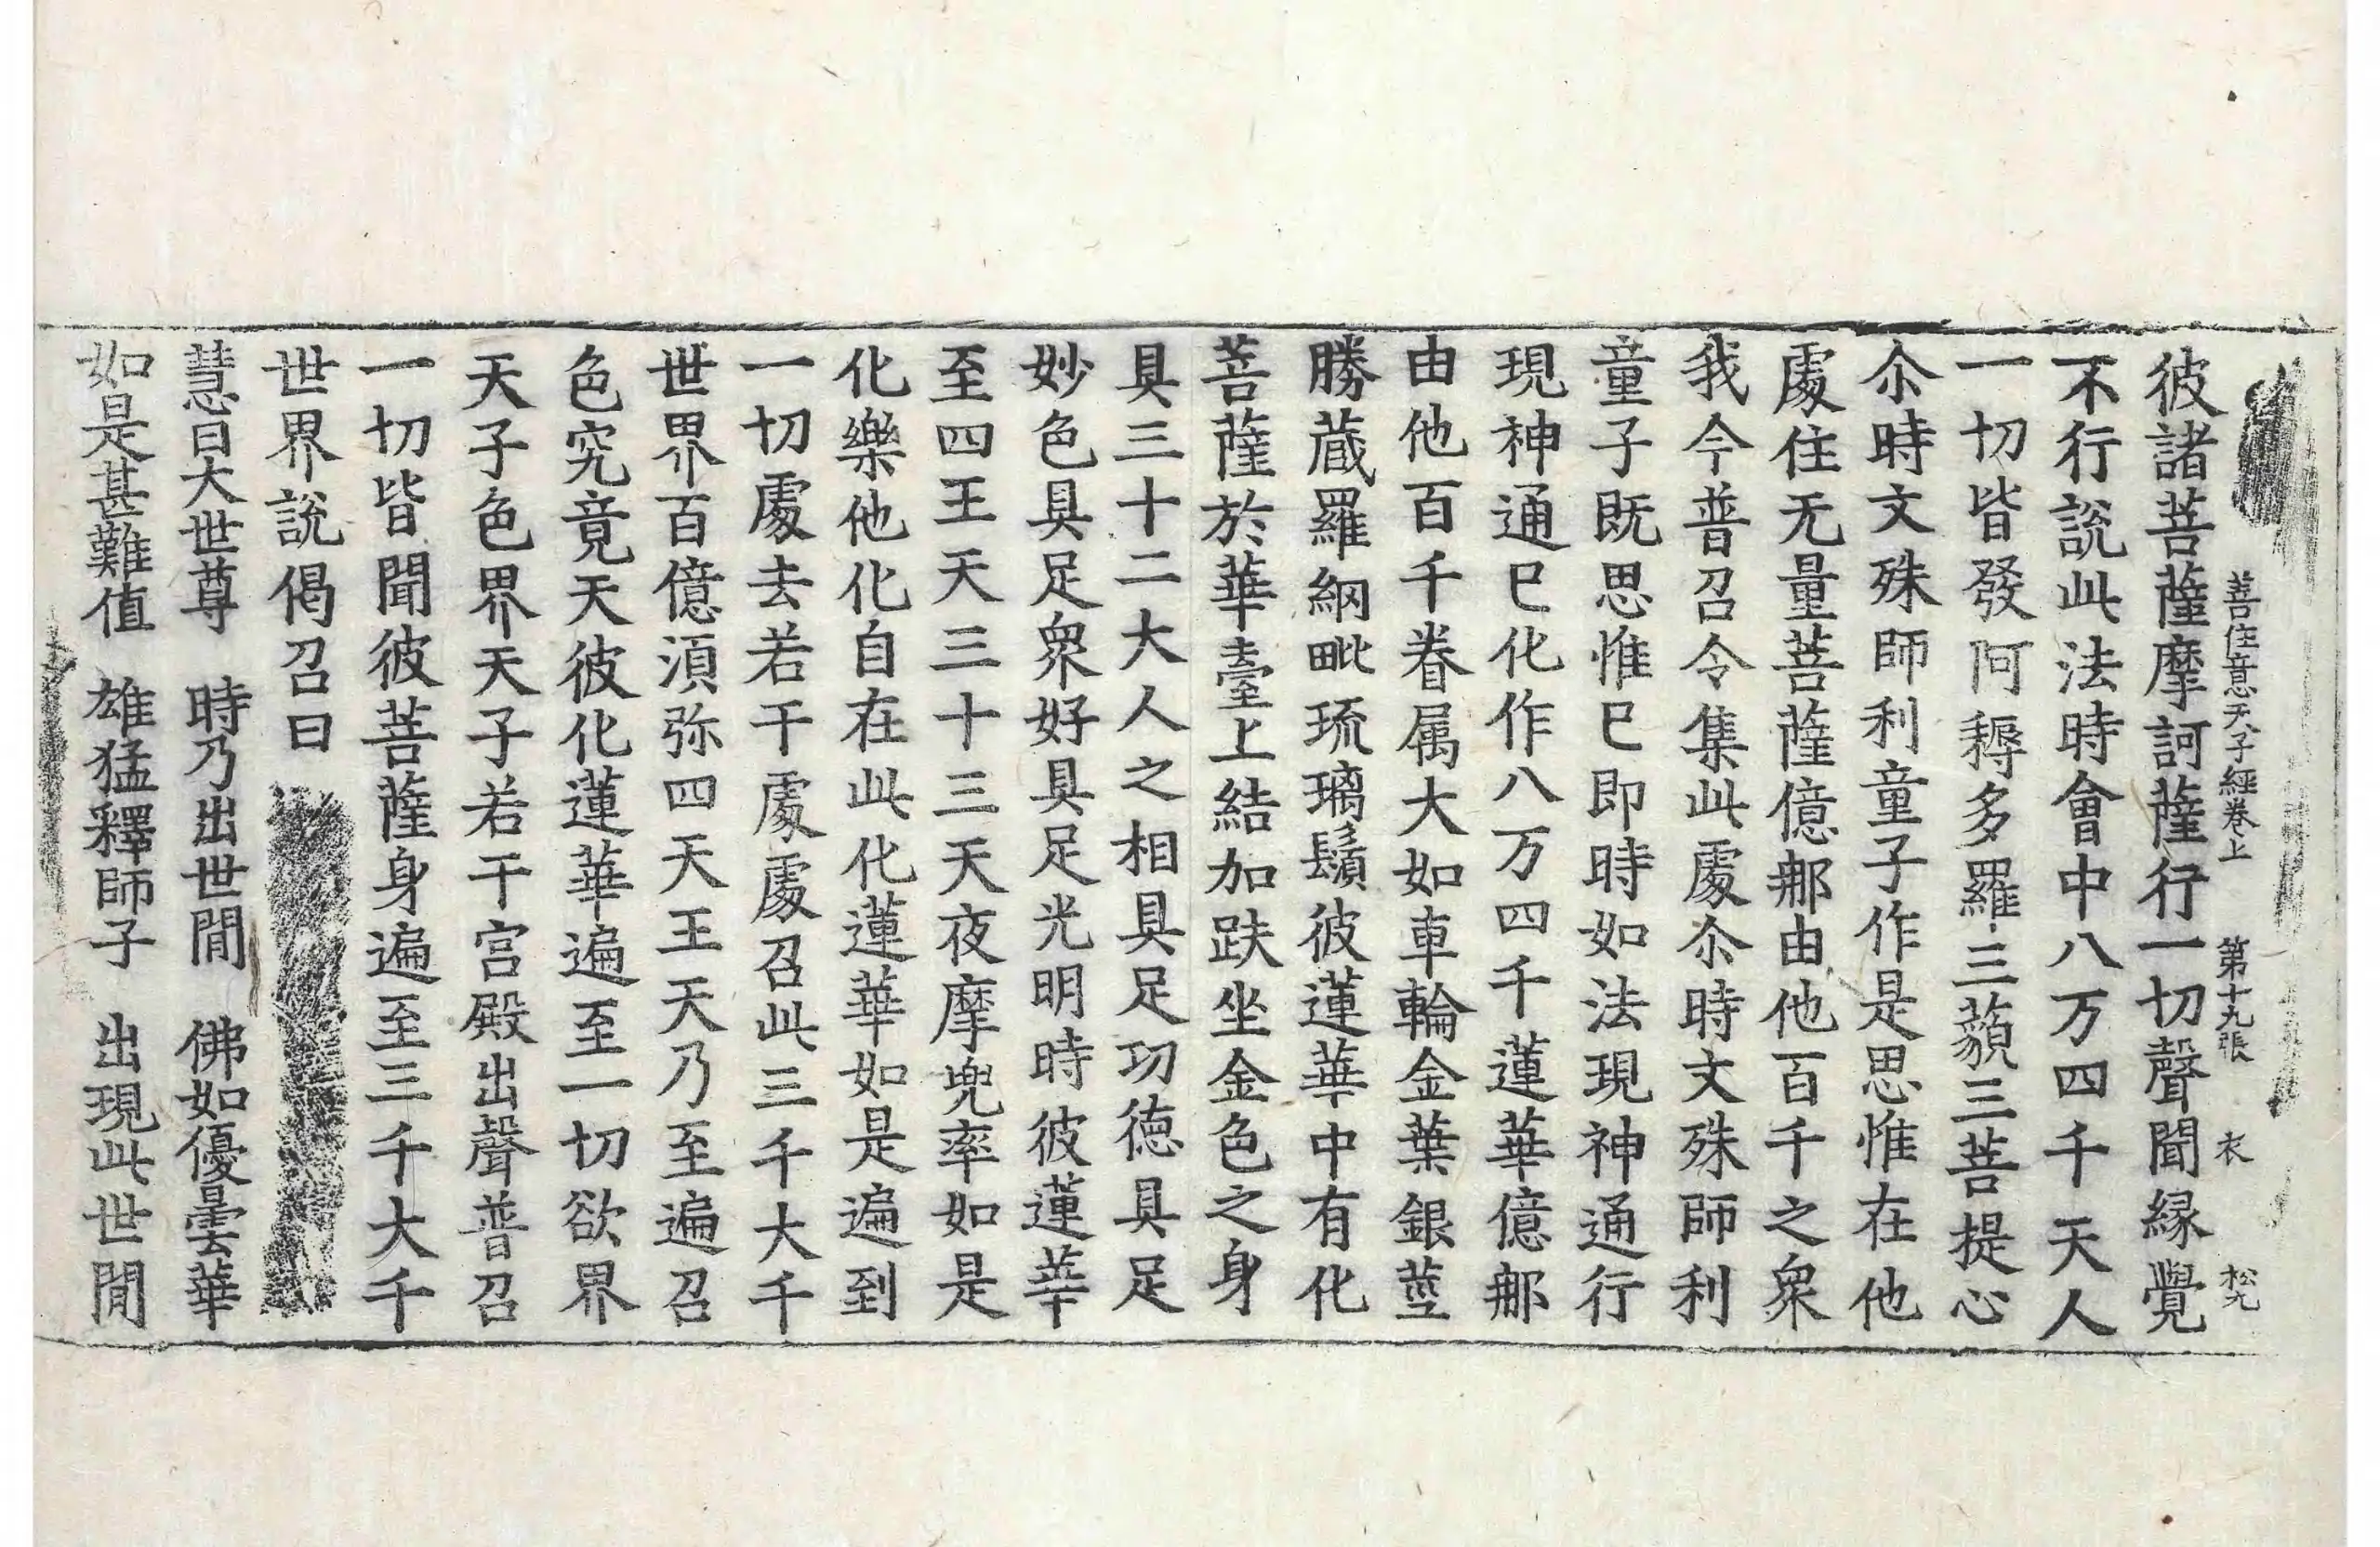 善住意天子經卷上　第十九張　衣　松九
彼諸菩薩摩訶薩行一切聲聞縁覺
不行說此法時會中八万四千天人
一切皆發阿耨多羅三藐三菩提心
尒時文殊師利童子作是思惟在他
處住无量菩薩億那由他百千之衆
我今普召令集此處尒時文殊師利
童子既思惟已即時如法現神通行
現神通已化作八万四千蓮華億那
由他百千眷属大如車輪金葉銀莖
勝蔵羅網毗琉璃鬚彼蓮華中有化
菩薩於華臺上結加趺坐金色之身
具三十二大人之相具足功徳具足
妙色具足衆好具足光明時彼蓮華
至四王天三十三天夜摩兜率如是
化樂他化自在此化蓮華如是遍到
一切處去若干處處召此三千大千
世界百億湏弥四天王天乃至遍召
色究竟天彼化蓮華遍至一切欲界
天子色界天子若干宮殿出聲普召
一切皆聞彼菩薩身遍至三千大千
世界說偈召曰
慧日大世尊　時乃出世間　佛如優曇華
如是甚難值　雄猛釋師子　出現此世間